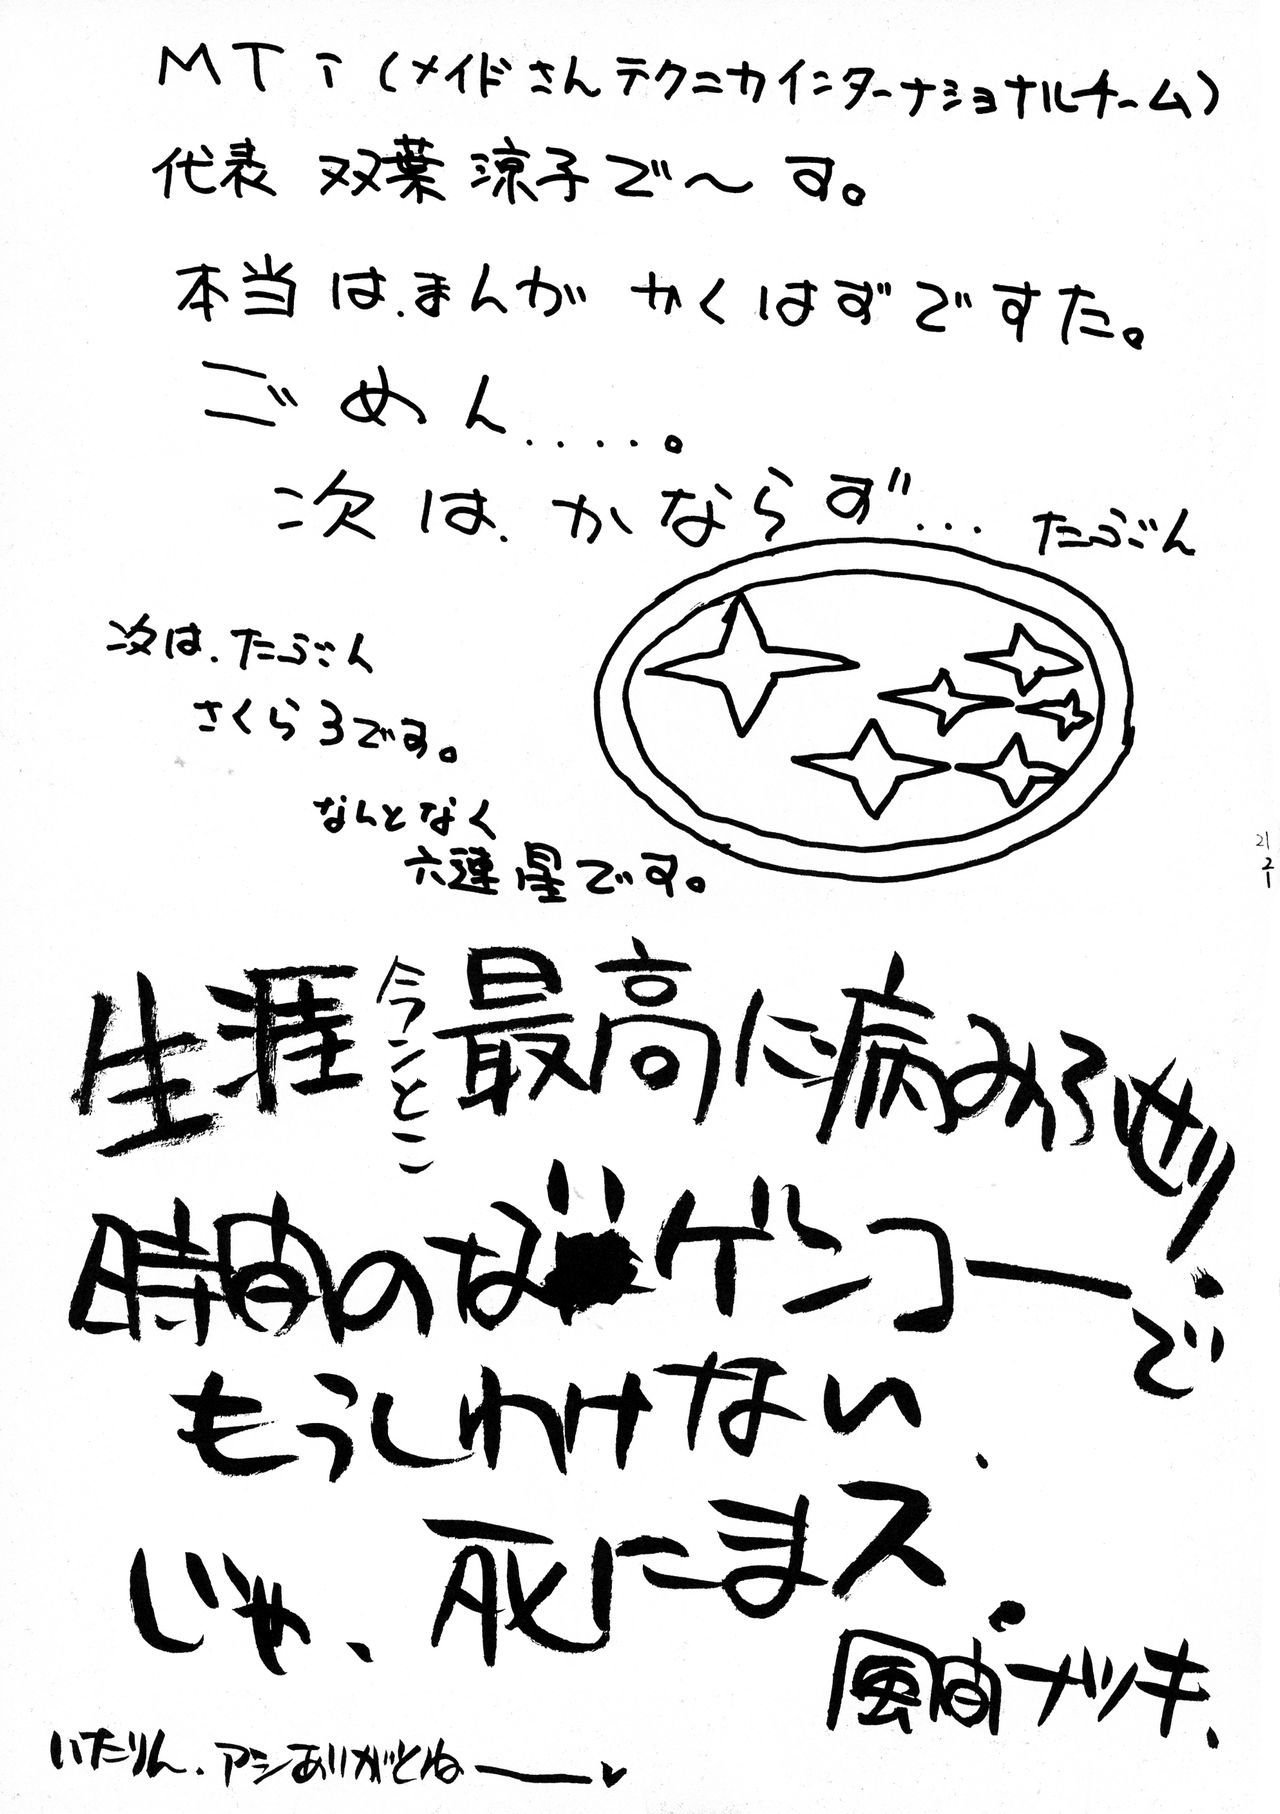 MTi(メイドさんテクニカインターナショナルチーム)
代表 双葉 涼子で〜す。
本当は、まんが かくはずですた。
ごめん.....。
次は、かならず... たぶん
次は、たぶん
さくら3です。
なんとなく
六連星です。
生涯 今んとこ 最高に病みろぜ!
時間のな ゲンコーで
もうしわけない、
じゃ、死にまス。
風間ナツキ、
いたりん、アシありがとねー♥